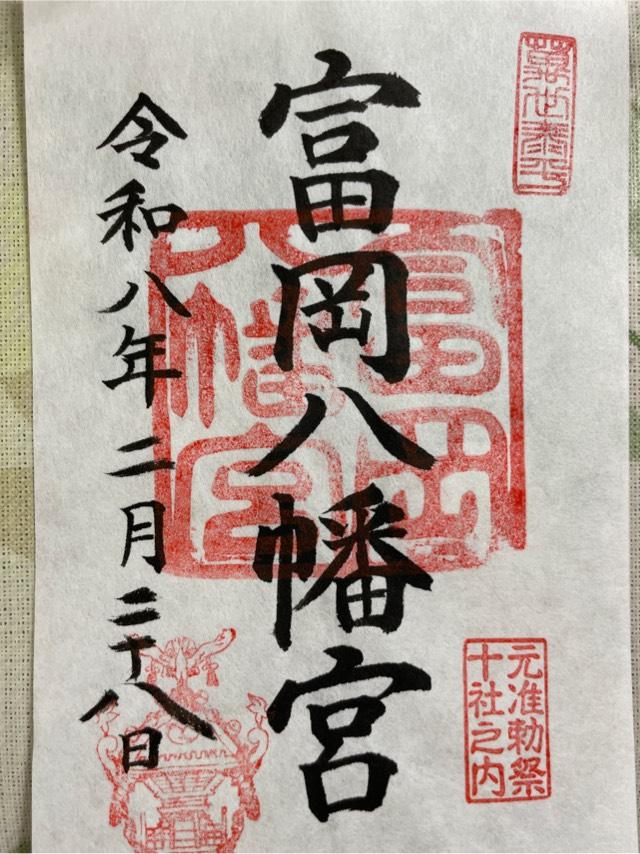 世泰平
富岡
八幡宮
元准勅祭
十社之内
富岡八幡宮
令和八年二月二十八日